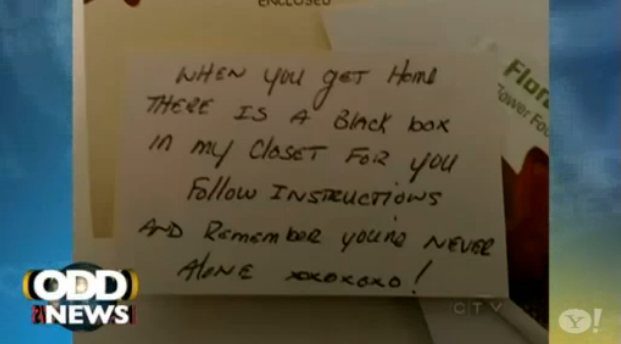 ENCLOSED
WHEN YOU GET HOME
THERE IS A BLACK BOX
IN MY CLOSET FOR YOU
FOLLOW INSTRUCTIONS
AND REMEMBER YOU'RE NEVER
ALONE xoxoxoxo!
Flor
Tower Fou
ODD
NEWS
CTV
Y!